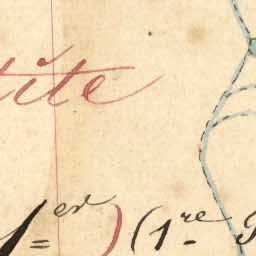 tite
1er) (1re